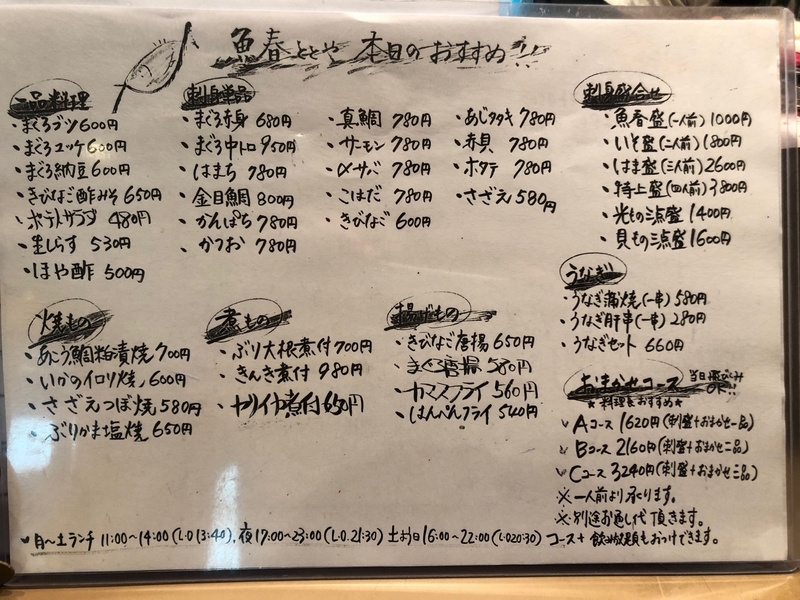 魚春ととや 本日のおすすめ!!
一品料理
・まぐろブツ 600円
・まぐろユッケ 600円
・まぐろ納豆 600円
・きびなご酢みそ 650円
・ポテトサラダ 480円
・生しらす 530円
・ほや酢 500円
刺身単品
・まぐろ赤身 680円
・まぐろ中トロ 950円
・はまち 780円
・金目鯛 800円
・かんぱち 780円
・かつお 780円
・真鯛 780円
・サーモン 780円
・〆サバ 780円
・こはだ 780円
・きびなご 600円
・あじタタキ 780円
・赤貝 780円
・ホタテ 780円
・さざえ 580円
刺身盛合せ
・魚春盛(一人前) 1000円
・いそ盛(二人前) 1800円
・はま盛(三人前) 2600円
・特上盛(四人前) 3800円
・光もの三点盛 1400円
・貝もの三点盛 1600円
うなぎ
・うなぎ蒲焼(一串) 580円
・うなぎ肝串(一串) 280円
・うなぎセット 660円
焼もの
・あこう鯛粕漬焼 700円
・いかのイロリ焼 600円
・さざえつぼ焼 580円
・ぶりかま塩焼 650円
煮もの
・ぶり大根煮付 700円
・きんき煮付 980円
・ヤリイカ煮付 650円
揚げもの
・きびなご唐揚 650円
・まぐろ唐揚 580円
・カマスフライ 560円
・はんぺんフライ 540円
おまかせコース 当日飛び込みOK!!
★料理長おすすめ★
✓Aコース 1620円(刺盛+おまかせ一品)
✓Bコース 2160円(刺盛+おまかせ二品)
✓Cコース 3240円(刺盛+おまかせ三品)
※一人前より承ります。
※別途お通し代頂きます。
✓月〜土ランチ 11:00〜14:00(L・O 13:40)、夜17:00〜23:00(L・O.21:30) 土お日16:00〜22:00(L・O20:30) コース+飲み放題もおつけできます。